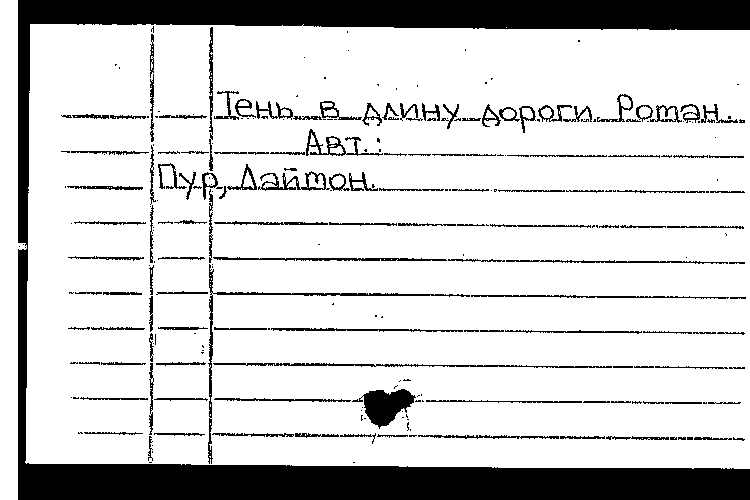 Тень в длину дороги. Роман.
Авт.:
Пур, Лайтон.